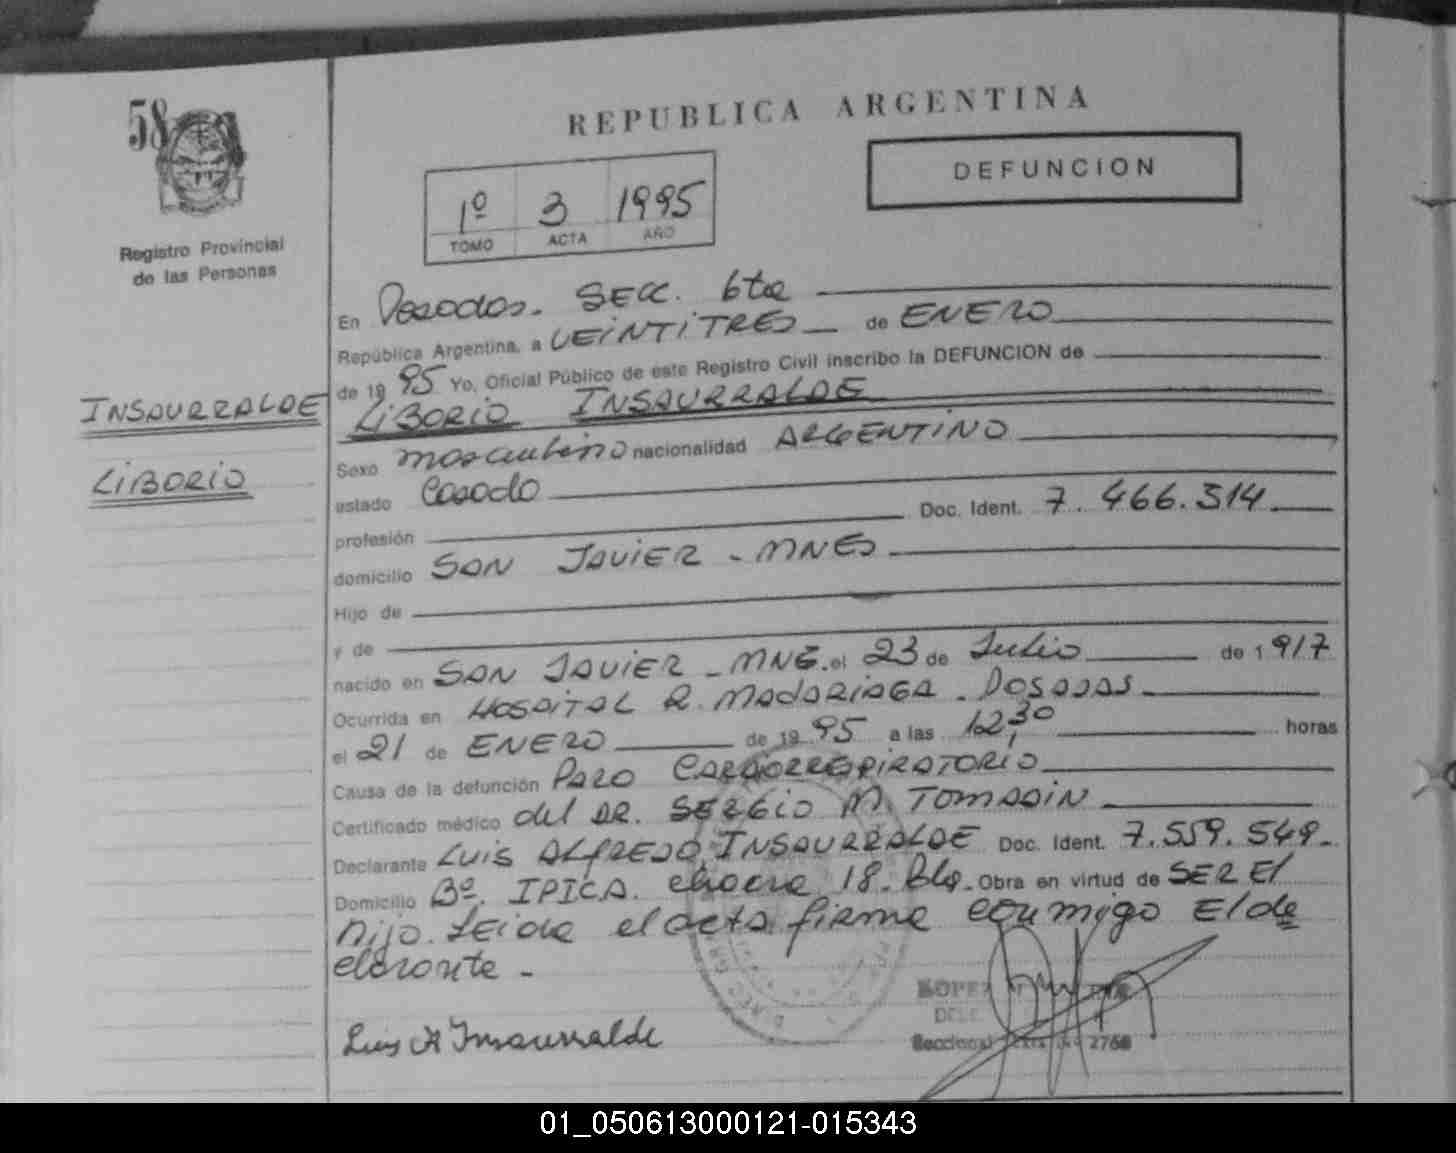 58
Registro Provincial
de las Personas
INSAURRALDE
LIBORIO
REPUBLICA ARGENTINA
DEFUNCION
1º 3 1995
TOMO ACTA AÑO
En Posadas. SECC. 6ta
República Argentina, a VEINTITRES de ENERO
de 1995 Yo, Oficial Público de este Registro Civil inscribo la DEFUNCION de
LIBORIO INSAURRALDE
Sexo masculino nacionalidad ARGENTINO
estado Casado
profesión Doc. Ident. 7.466.314
domicilio SAN JAVIER - MNES
Hijo de
y de
nacido en SAN JAVIER - MNES. el 23 de Julio de 1917
Ocurrida en HOSPITAL R. MADARIAGA - POSADAS
el 21 de ENERO de 1995 a las 12,30 horas
Causa de la defunción PARO CARDIORRESPIRATORIO
Certificado médico del DR. SERGIO M. TOMASIN
Declarante LUIS ALFREDO INSAURRALDE Doc. Ident. 7.559.549-
Domicilio Bº. IPICA. chacra 18. Obra en virtud de SER El
hijo. Leida el acta firma conmigo El de
clarante -
Luis A Insaurralde
LOPEZ
DELE
Seccional 2768
01_050613000121-015343